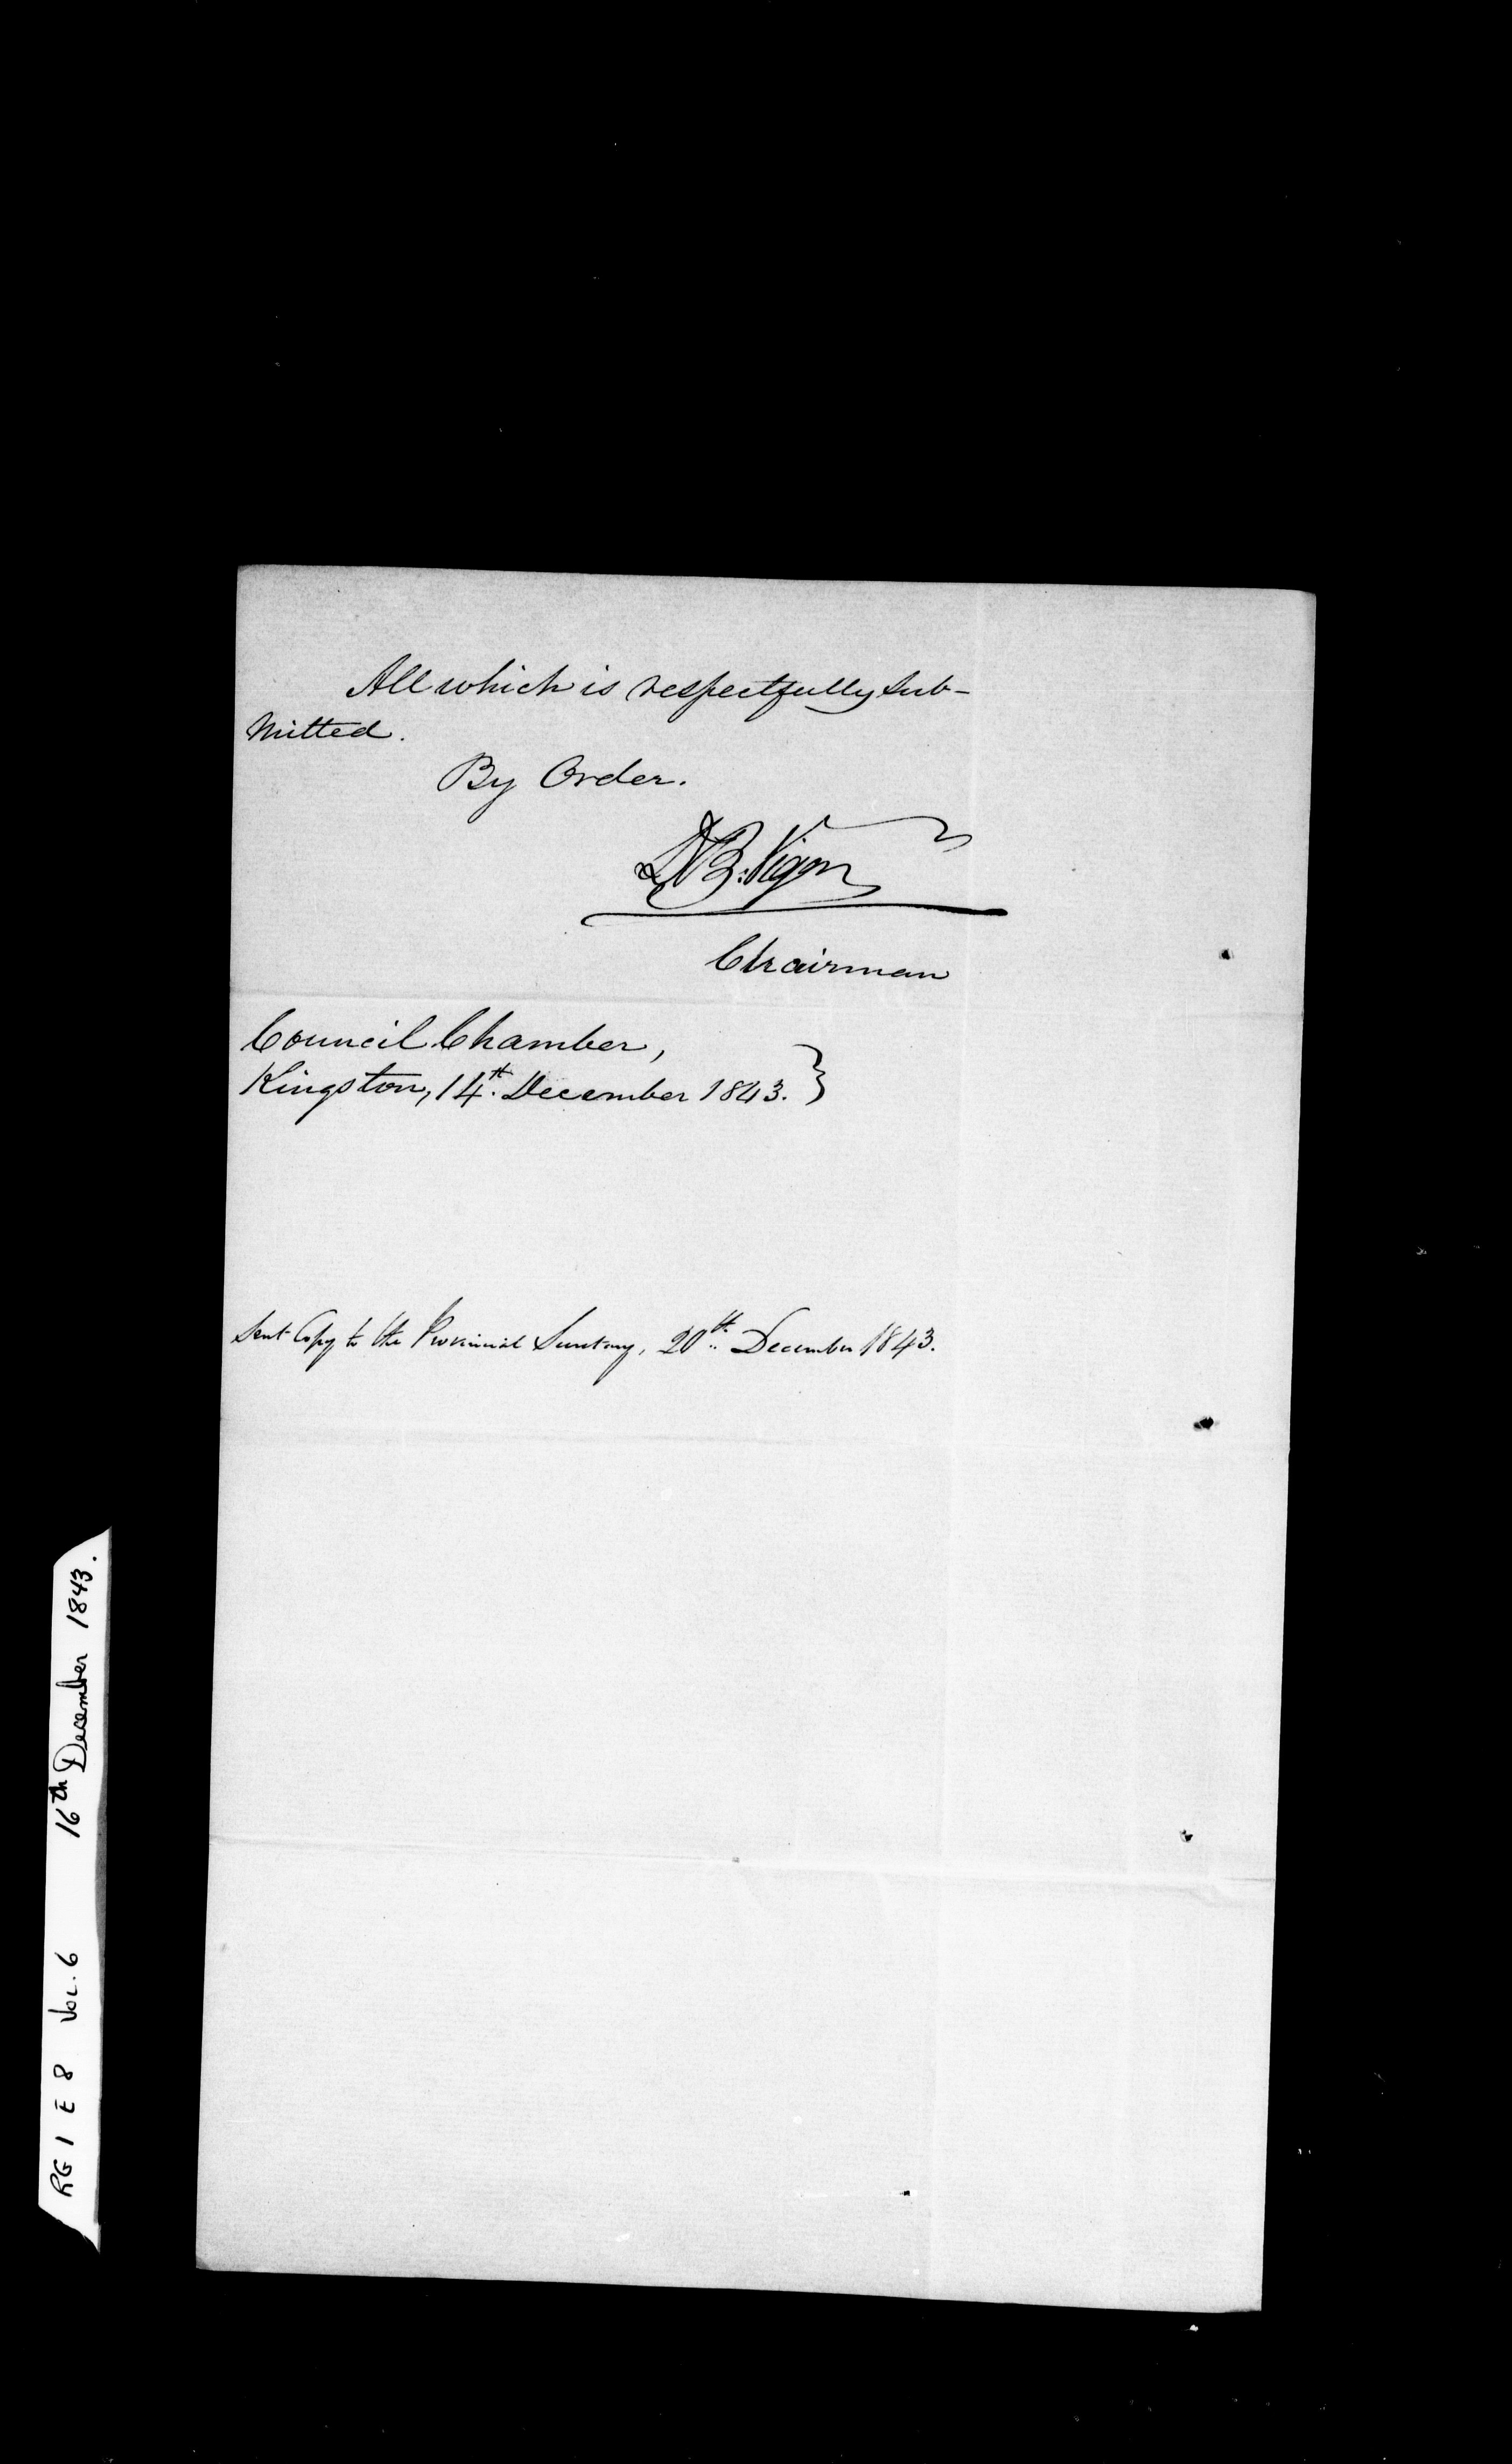 All which is respectfully sub-
mitted.
By Order.
D.B. Viger
Chairman
Council Chamber,
Kingston, 14th. December 1843.
Sent Copy to the Provincial Secretary, 20th. December 1843.
RG 1 E 8 Vol. 6 16th December 1843.